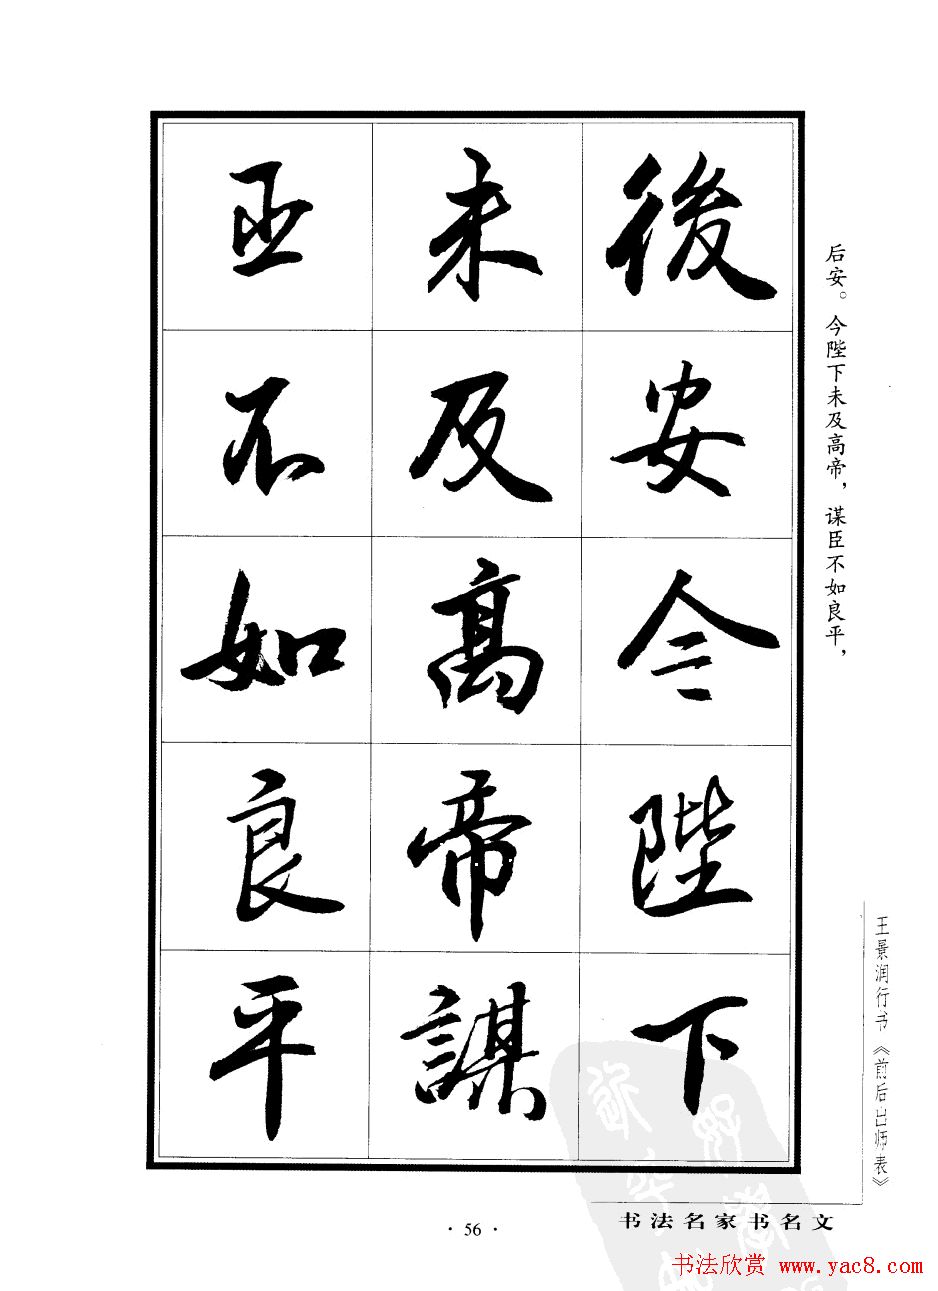 後安今陛下
未及高帝謀
臣不如良平
后安。今陛下未及高帝，谋臣不如良平，
王景润行书《前后出师表》
书法名家书名文
·56·
书法欣赏 www.yac8.com